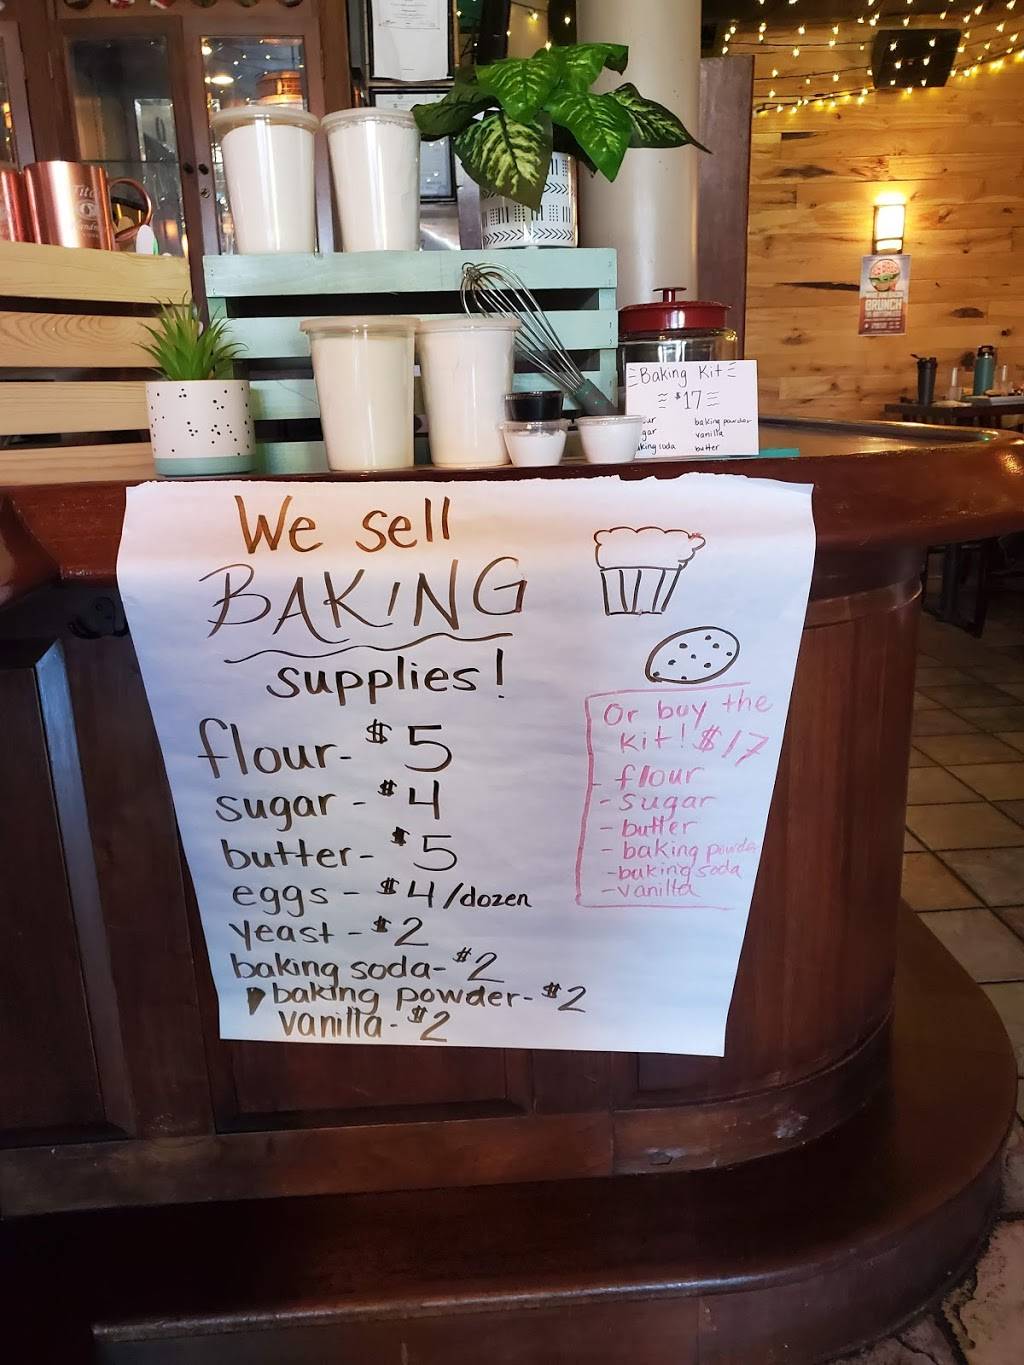 Tito
Baking Kit
$17
baking powder
vanilla
baking soda butter
BRUNCH
We sell
BAKING
supplies!
flour - $5
sugar - $4
butter - $5
eggs - $4/dozen
yeast - $2
baking soda - $2
baking powder - $2
vanilla - $2
Or buy the
kit! $17
- flour
- sugar
- butter
- baking powder
- baking soda
- vanilla